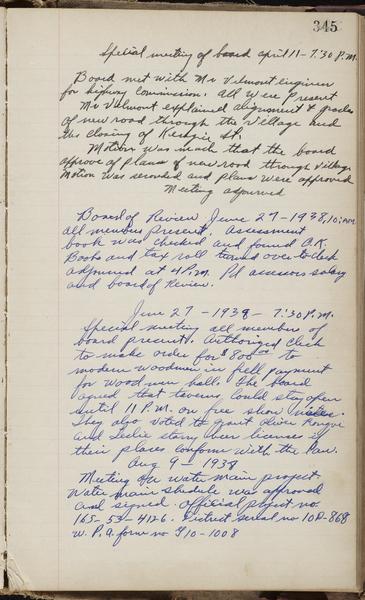 345
Special meeting of board april 11 - 7:30 P.M.
Board met with Mr Vilmont engineer
for highway Commission. All were present
Mr Vilmont explained alignment & grades
of new road through the Village and
the closing of Kenzie St.
Motion was made that the board
approve of plans of new road through Village
Motion was seconded and plans were approved
Meeting adjourned
Board of Review June 27 - 1938, 10: AM
all members present. Assessment
book was checked and found O.K.
Books and tax roll turned over to clerk
adjourned at 4 P.M. Pd assessors salary
and board of Review.
June 27 - 1938 - 7:30 P.M.
Special meeting all members of
board present. Authorized Clerk
to make order for $800.00 to
modern woodmen in full payment
for woodmen hall. The board
agreed that taverns could stay open
until 11 P.M. on free show nites.
They also voted to grant Oliver
and Leslie beer licenses if
their places conform with the law.
Aug 9 - 1938
Meeting for water main project.
Water main shedule was approved
and signed. Official project no.
165-53-4126. District serial no 10D-868
W.P.A. form no 710-1008